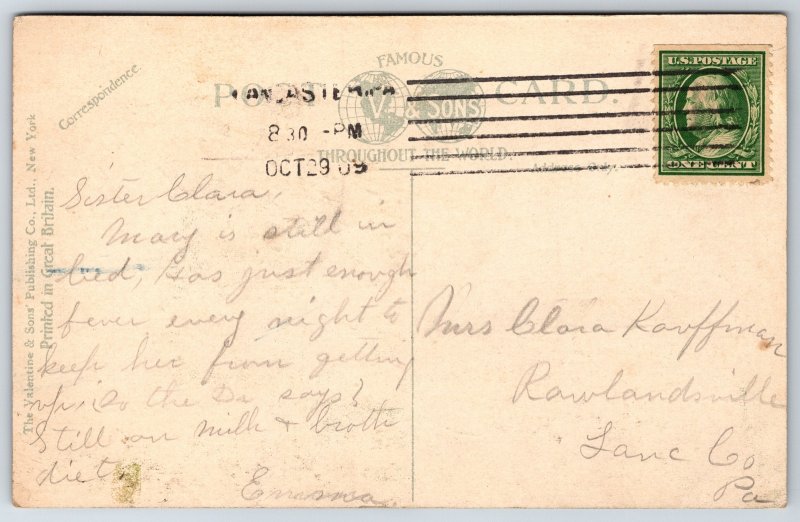 FAMOUS
POST CARD.
V. & SONS
THROUGHOUT THE WORLD
Correspondence.
Address Only.
The Valentine & Sons' Publishing Co., Ltd., New York
Printed in Great Britain.
LANCASTER, PA
8 30 - PM
OCT 29 09
U.S. POSTAGE
ONE CENT
Sister Clara,
Mary is still in
bed, has just enough
fever every night to
keep her from getting
up, so the Dr says?
Still on milk & broth
diet.
Emma
Mrs Clara Kauffman
Rawlandsville
Lanc Co
Pa